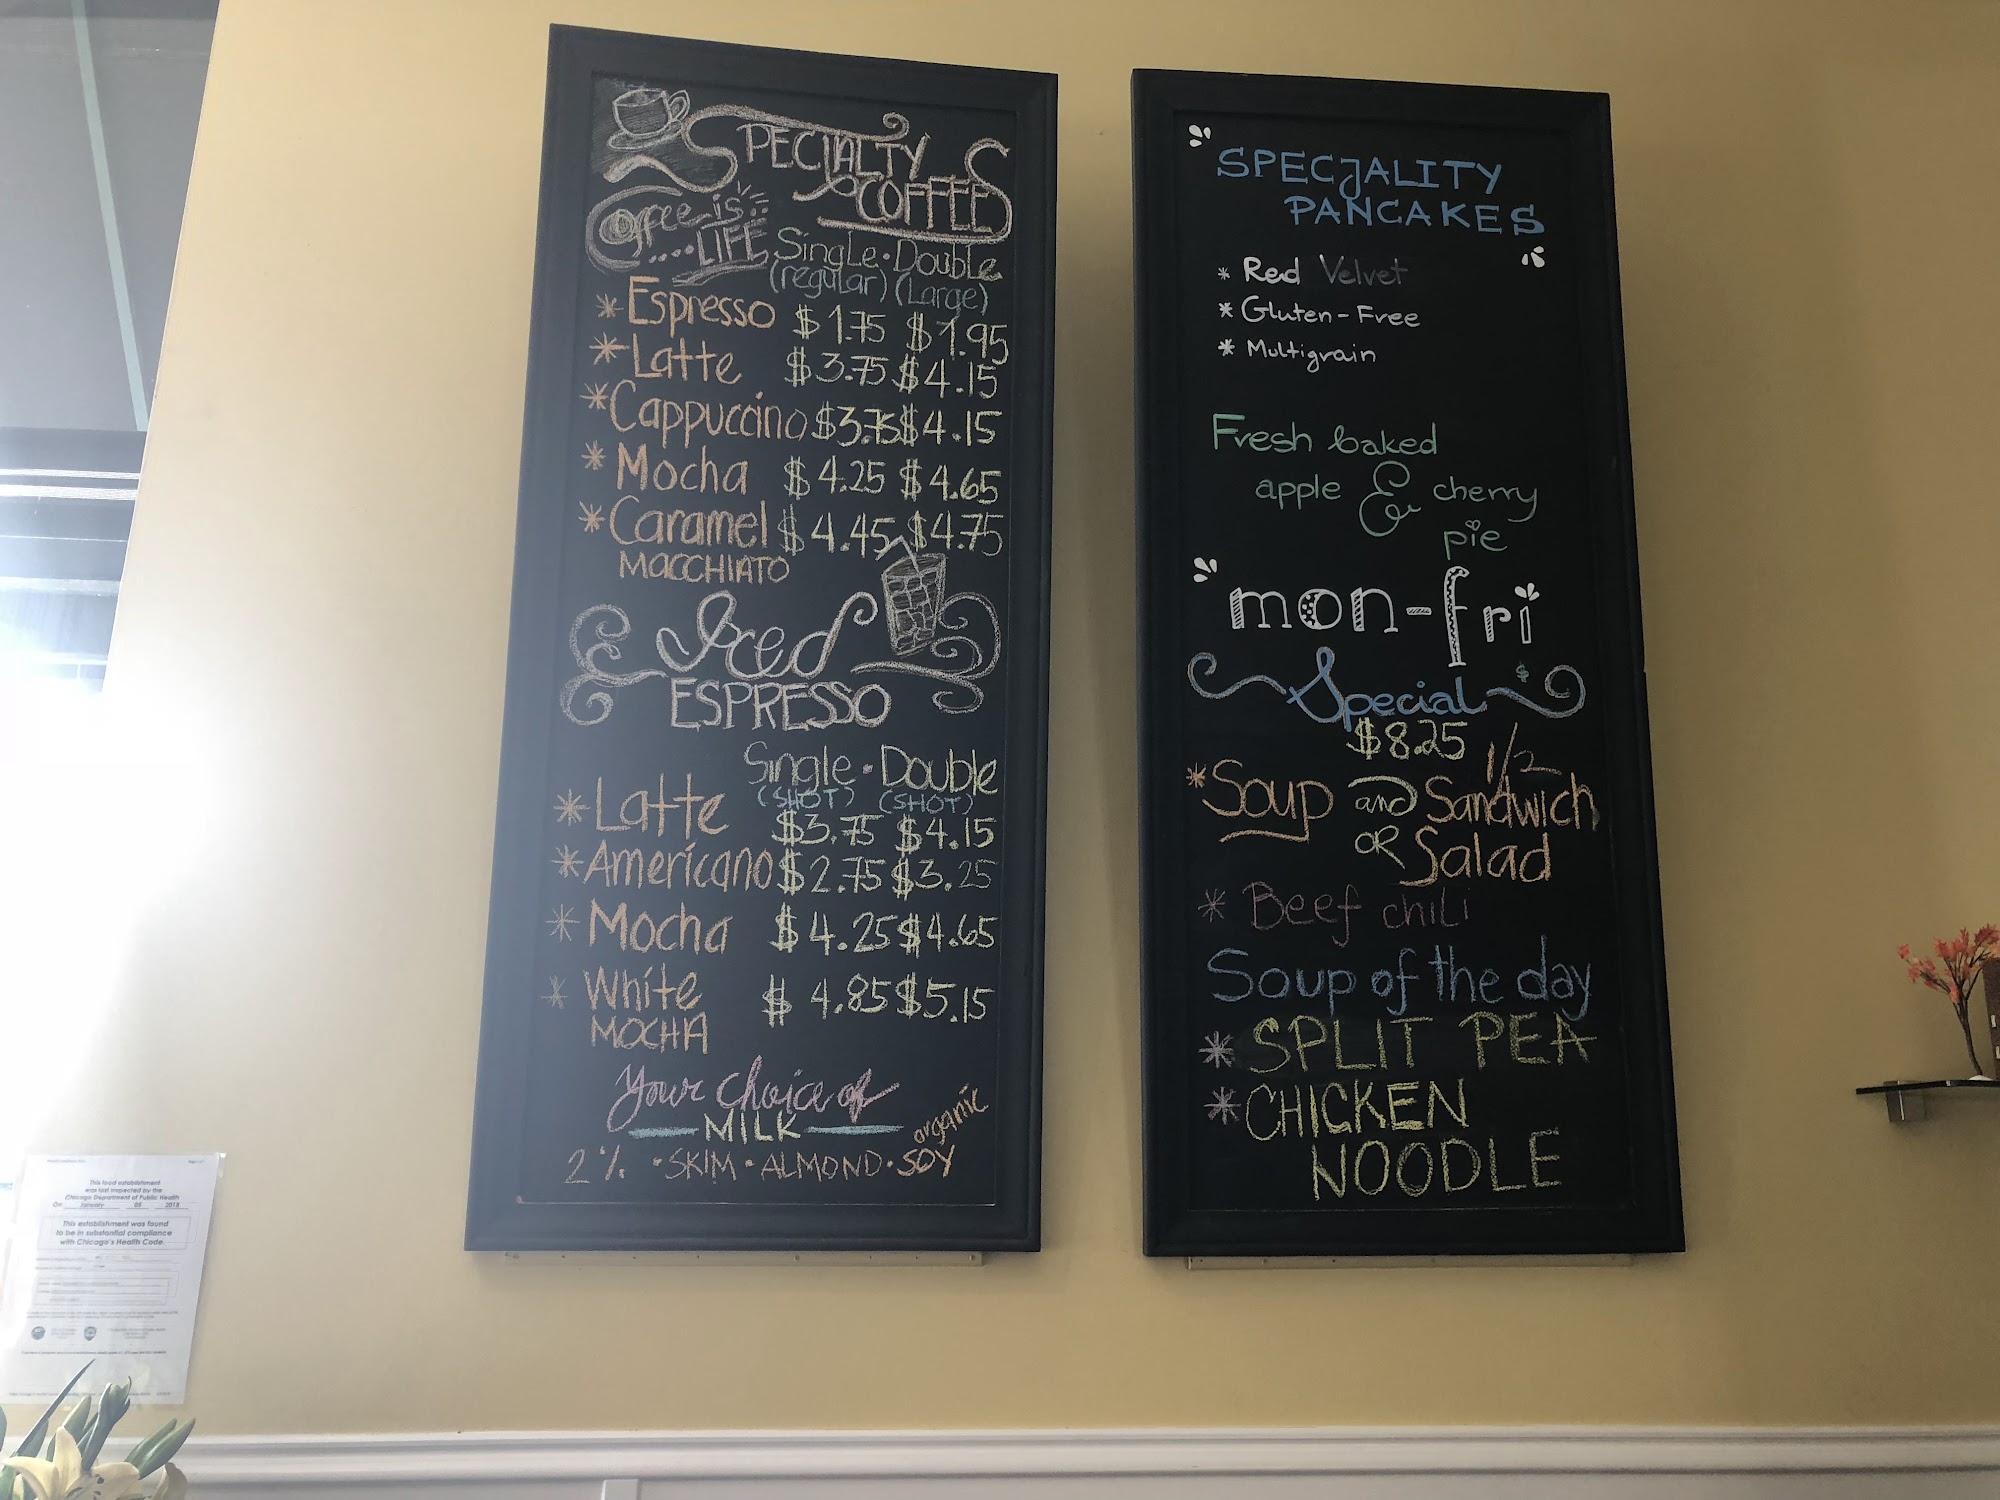 SPECIALTY
COFFEES
Coffee is
....LIFE
Single • Double
(regular) (Large)
* Espresso $1.75 $1.95
* Latte $3.75 $4.15
* Cappuccino $3.75 $4.15
* Mocha $4.25 $4.65
* Caramel $4.45 $4.75
MACCHIATO
Iced
ESPRESSO
Single • Double
(SHOT) (SHOT)
* Latte $3.75 $4.15
* Americano $2.75 $3.25
* Mocha $4.25 $4.65
* White $4.85 $5.15
MOCHA
Your choice of
MILK
2% • SKIM • ALMOND • organic SOY
SPECIALITY
PANCAKES
* Red Velvet
* Gluten-Free
* Multigrain
Fresh baked
apple & cherry
pie
mon-fri
Special $
$8.25
* Soup and 1/2 Sandwich
OR Salad
* Beef chili
Soup of the day
* SPLIT PEA
* CHICKEN
NOODLE
This food establishment
was last inspected by the
Chicago Department of Public Health
On January 05 2018
This establishment was found
to be in substantial compliance
with Chicago's Health Code.